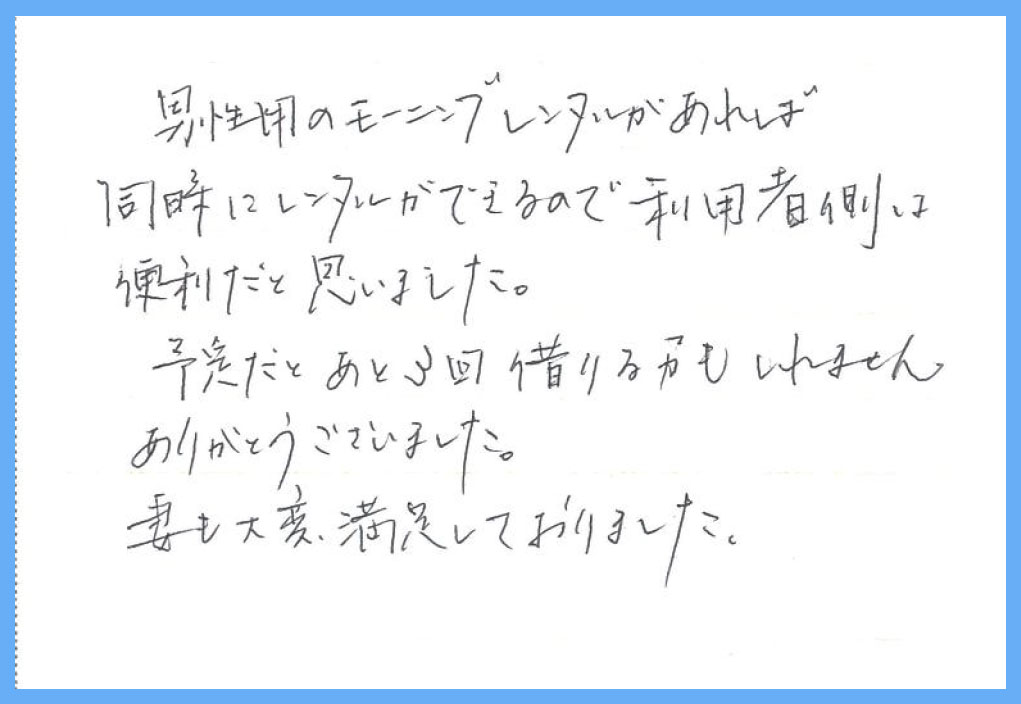 男性用のモーニングレンタルがあれば
同時にレンタルができるので利用者側は
便利だと思いました。
予定だとあと3回借りるかもしれません
ありがとうございました。
妻も大変、満足しておりました。